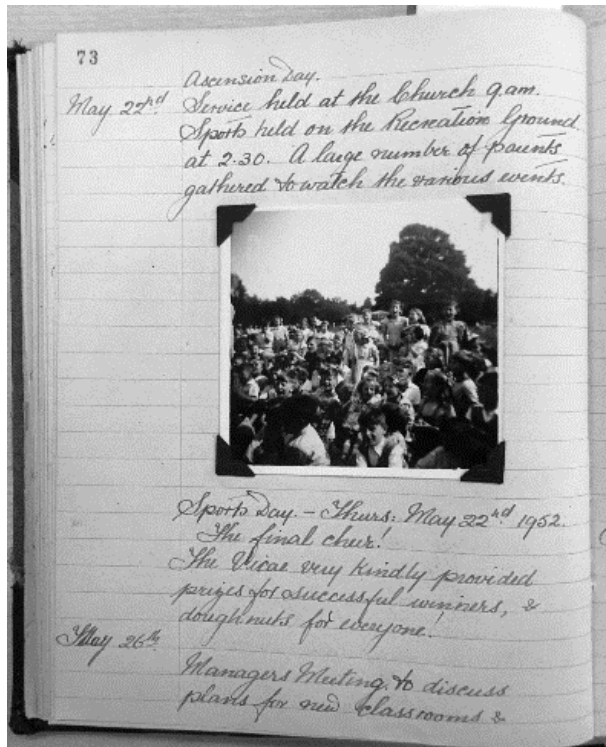 73
Ascension Day.
May 22nd Service held at the Church 9 a.m.
Sports held on the Recreation Ground
at 2.30. A large number of parents
gathered to watch the various events.
Sports Day. – Thurs: May 22nd 1952.
The final cheer!
The Vicar very kindly provided
prizes for successful winners, &
doughnuts for everyone!
May 26th.
Managers Meeting. to discuss
plans for new classrooms &